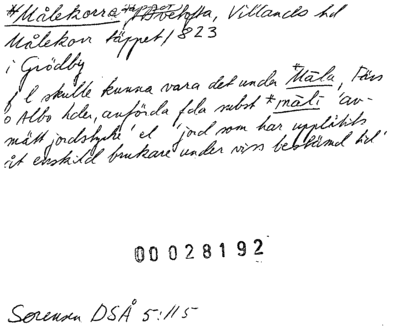 *Målekorra, Ivetofta, Villands hd
Målekorr täppet 1823
i Grödby
f l skulle kunna vara det under *Måla, Färs
o Albo hder, anförda fda subst *māli 'av-
mätt jordstycke' el 'jord som har upplåtits
åt enskild brukare under viss bestämd tid'
00028192
Sorensen DSÅ 5:115